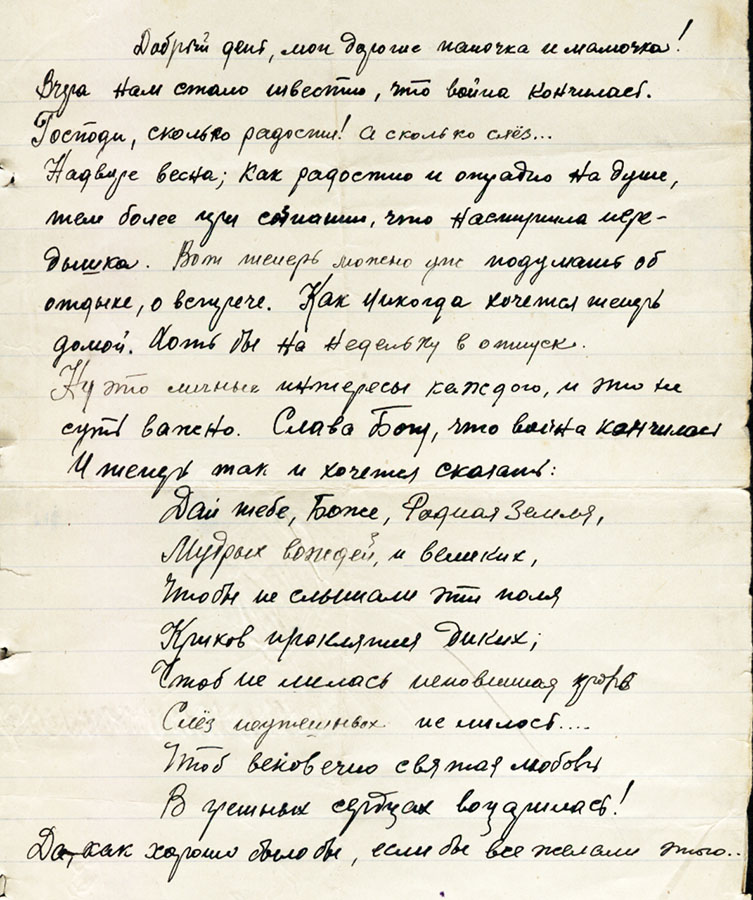 Добрый день, мои дорогие папочка и мамочка!
Вчера нам стало известно, что война кончилась.
Господи, сколько радости! А сколько слёз...
На дворе весна; как радостно и отрадно на душе,
тем более при сознании, что наступила пере-
дышка. Вот теперь можно уже подумать об
отдыхе, о встрече. Как никогда хочется теперь
домой. Хоть бы на недельку в отпуск.
Ну это личные интересы каждого, и это не
суть важно. Слава Богу, что война кончилась
И теперь так и хочется сказать:
Дай тебе, Боже, Родная Земля,
Мудрых вождей, и великих,
Чтобы не слышали эти поля
Криков проклятия диких;
Чтоб не лилась неповинная кровь
Слёз неутешных не лилось....
Чтоб вековечно святая любовь
В грешных сердцах воцарилась!
Да, как хорошо было бы, если бы все желали этого..